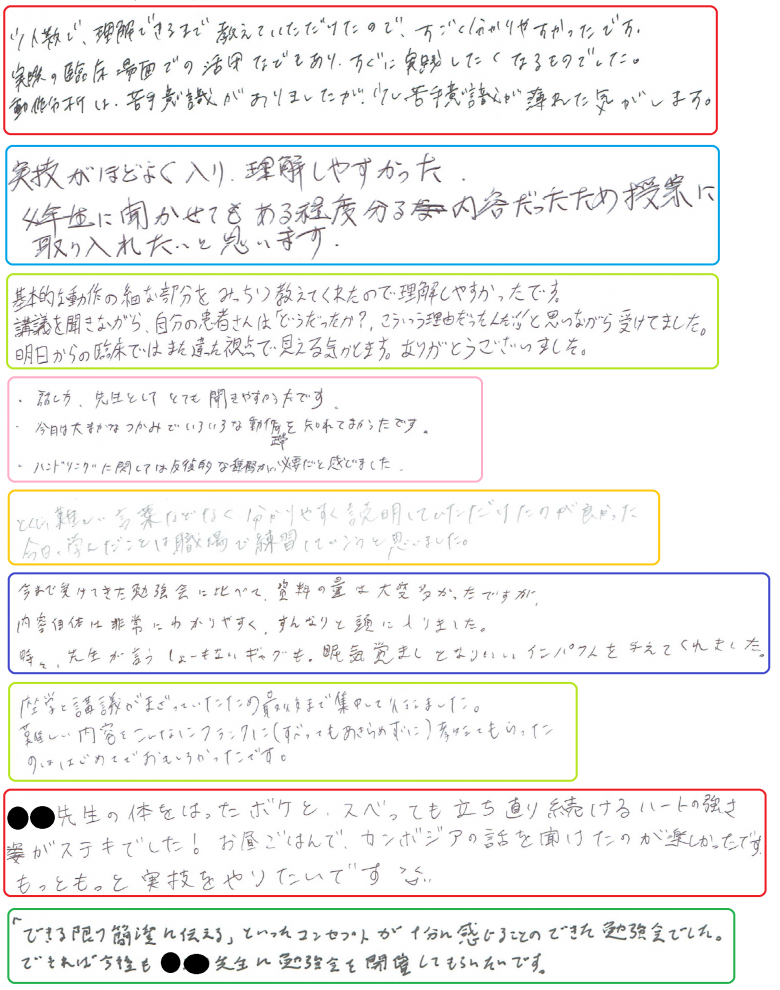 少人数で、理解できるまで教えていただけたので、すごく分かりやすかったです。
実際の臨床場面での活用などもあり、すぐに実践したくなるものでした。
動作分析は、苦手意識がありましたが、少し苦手意識が薄れた気がします。
実技がほどよく入り、理解しやすかった。
4年生に聞かせてもある程度分る内容だったため授業に
取り入れたいと思います。
基本的な動作の細な部分をみっちり教えてくれたので理解しやすかったです。
講義を聞きながら、自分の患者さんは「どうだったか?、こういう理由だったんだ!!」と思いながら受けてました。
明日からの臨床ではまた違った視点で見える気がします。ありがとうございました。
・話し方、先生としてとても聞きやすかったです。
・今日は大まかなつかみでいろいろな動作を知れてよかったです。
・ハンドリングに関しては反復的な練習が必要だと感じました。
難しい言葉などなく分かりやすく説明していただけたのが良かった
今日、学んだことは職場で練習していこうと思いました。
今まで受けてきた勉強会に比べて、資料の量は大変多かったですが、
内容自体は非常にわかりやすく、すんなりと頭に入りました。
時々、先生が言うしょーもないギャグも。眠気覚ましとなりいいインパクトを与えてくれました。
座学と講義がまざっていたため最後まで集中して行えました。
難しい内容をこんなにフランクに(すべってもあきらめずに)教えてもらった
のははじめてでおもしろかったです。
●●先生の体をはったボケと、スベっても立ち直り続けるハートの強さ
姿がステキでした! お昼ごはんで、カンボジアの話を聞けたのが楽しかったです。
もっともっと実技をやりたいです
「できる限り簡潔に伝える」といったコンセプトが十分に感じることのできた勉強会でした。
できれば今後も●●先生に勉強会を開催してもらいたいです。